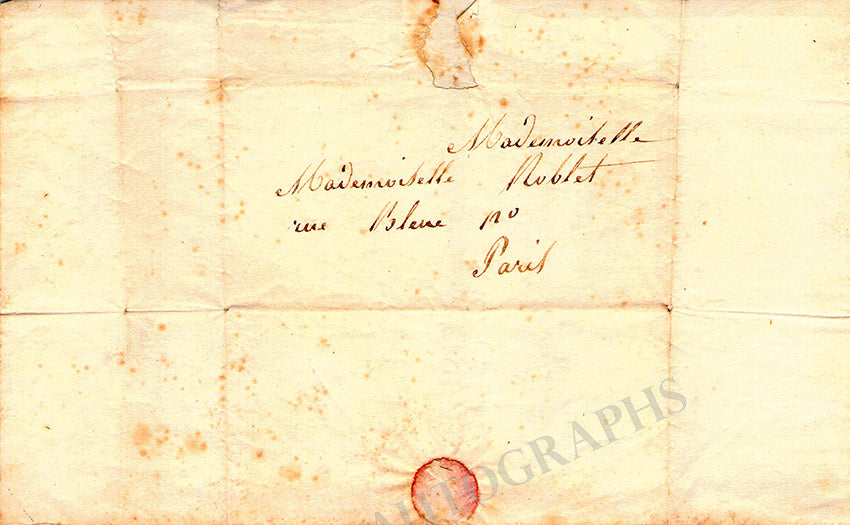 Mademoiselle
Mademoiselle Noblet
rue Bleue no
Paris
AUTOGRAPHS